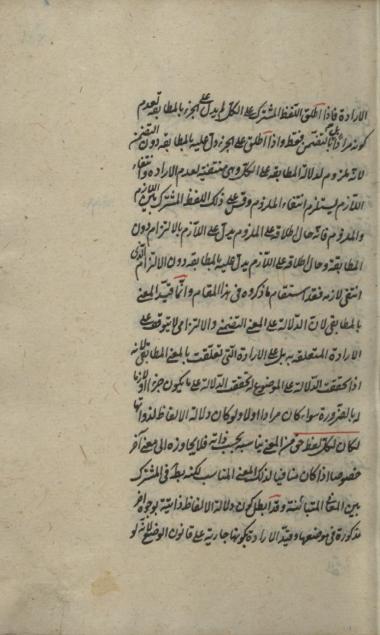 الارادة فاذا اطلق اللفظ المشترك على الكل لم يدل على الجزء بالمطابقة لعدم
كونه مرادا بل بالتضمن فقط واذا اطلق على الجزء دل عليه بالمطابقة دون التضمن
لانه ملزوم لدلالة المطابقة على الكل وهي منتفية لعدم الارادة وانتفاء
اللازم يستلزم انتفاء الملزوم وقس على ذلك اللفظ المشترك بين اللازم
والملزوم فانه حال اطلاقه على الملزوم يدل على اللازم بالالتزام دون
المطابقة وحال اطلاقه على اللازم يدل عليه بالمطابقة دون الالتزام الذي
انتفى لازمه فقد استقام ما ذكروه في هذا المقام وانما قيد المعنى
بالمطابقي لان الدلالة على المعنى التضمني والالتزامي لا يتوقف على
الارادة المتعلقة به بل على الارادة التي تعلقت بالمعنى المطابقي لانه
اذا تحققت الدلالة على الموضوع له تحققت الدلالة على ما يكون جزءا او لازما
له بالضرورة سواء كان مرادا اولا ولو كان دلالة الالفاظ لذواتها
لكان لكل لفظ حق من المعنى يناسب بحسب ذاته فلا يجاوزه الى معنى آخر
خصوصا اذا كان منافيا لذلك المعنى المناسب لكنه بطل في المشترك
بين المعاني المتباينة وقد ابطل كون دلالة الالفاظ ذاتية بوجوه اخر
مذكورة في موضعها وقيد الارادة بكونها جارية على قانون الوضع لانه لو